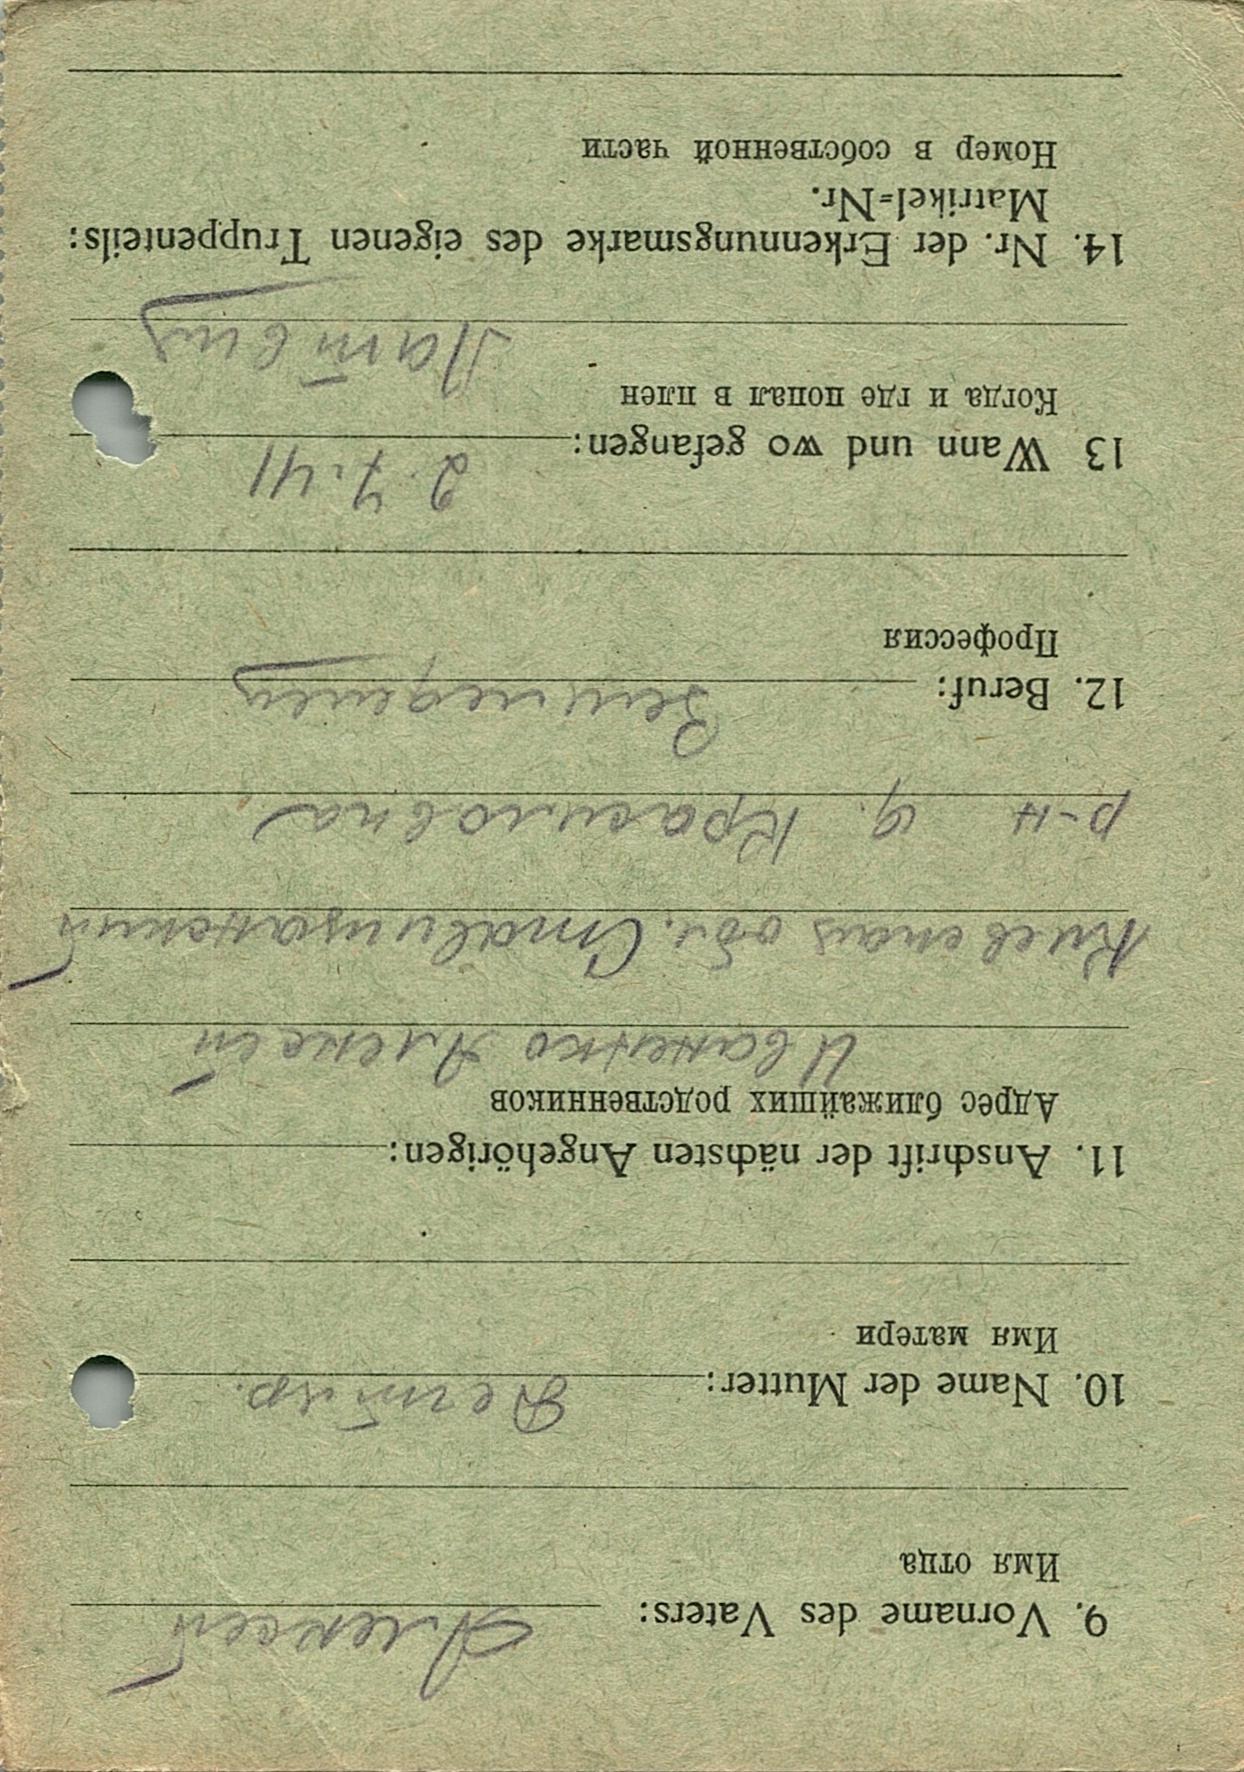 9. Vorname des Vaters: Алексей
Имя отца
10. Name der Mutter:
Имя матери
11. Anschrift der nächsten Angehörigen:
Адрес ближайших родственников
Иваненко Алексей
Киевская обл. Ставищанский
р-н д. Красиловка
12. Beruf: Земледелец
Профессия
13 Wann und wo gefangen: 2.7.41
Когда и где попал в плен
Латвия
14. Nr. der Erkennungsmarke des eigenen Truppenteils:
Matrikel=Nr.
Номер в собственной части